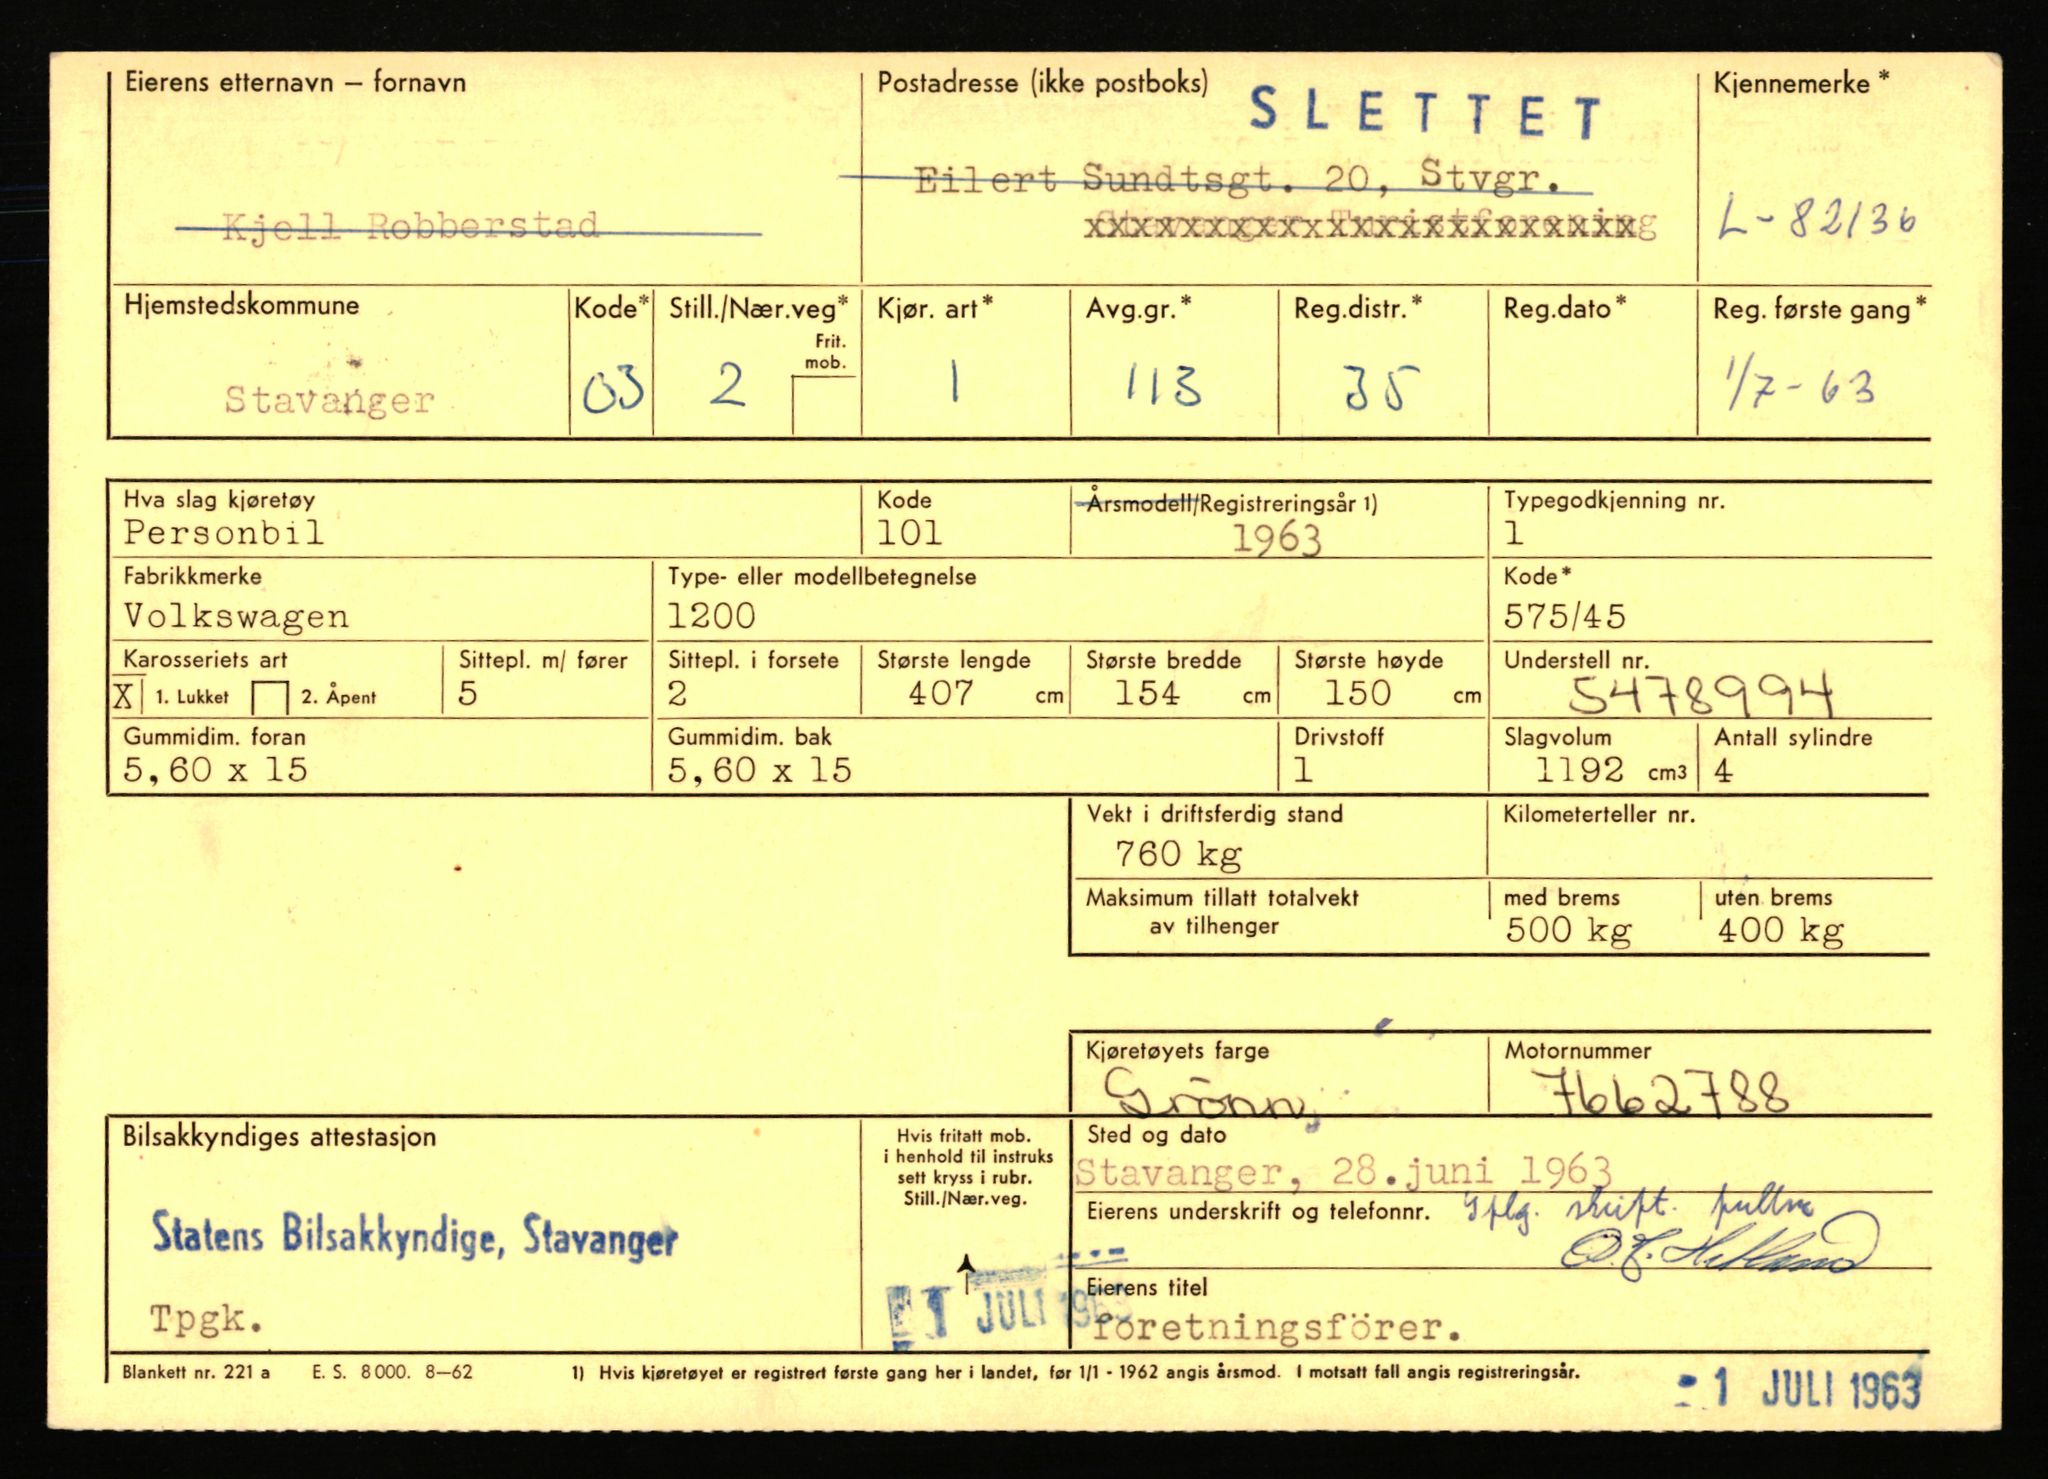 Eierens etternavn – fornavn
Postadresse (ikke postboks)
SLETTET
Kjennemerke *
Eilert Sundtsgt. 20, Stvgr.
Kjell Robberstad
Stavanger Turistforening
L-82136
Hjemstedskommune
Kode*
Still./Nær.veg*
Frit. mob.
Kjør. art*
Avg.gr.*
Reg.distr.*
Reg.dato*
Reg. første gang*
Stavanger
03
2
1
113
35
1/7-63
Hva slag kjøretøy
Kode
Årsmodell/Registreringsår 1)
Typegodkjenning nr.
Personbil
101
1963
1
Fabrikkmerke
Type- eller modellbetegnelse
Kode*
Volkswagen
1200
575/45
Karosseriets art
Sittepl. m/ fører
Sittepl. i forsete
Største lengde
Største bredde
Største høyde
Understell nr.
X 1. Lukket 2. Åpent
5
2
407 cm
154 cm
150 cm
5478994
Gummidim. foran
Gummidim. bak
Drivstoff
Slagvolum
Antall sylindre
5,60 x 15
5,60 x 15
1
1192 cm3
4
Vekt i driftsferdig stand
Kilometerteller nr.
760 kg
Maksimum tillatt totalvekt
av tilhenger
med brems
uten brems
500 kg
400 kg
Kjøretøyets farge
Motornummer
Grönn
7662788
Bilsakkyndiges attestasjon
Hvis fritatt mob.
i henhold til instruks
sett kryss i rubr.
Still./Nær.veg.
Sted og dato
Stavanger, 28.juni 1963
Eierens underskrift og telefonnr.
Statens Bilsakkyndige, Stavanger
Eierens titel
1 JULI 1963
Tpgk.
foretningsförer.
Blankett nr. 221 a E. S. 8000. 8–62
1) Hvis kjøretøyet er registrert første gang her i landet, før 1/1 - 1962 angis årsmod. I motsatt fall angis registreringsår.
-1 JULI 1963